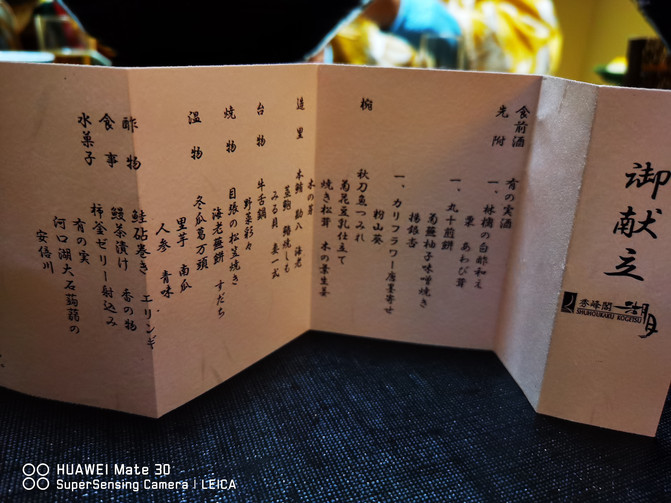 御献立
秀峰閣 湖月
SHUHOUKAKU KOGETSU
食前酒 有の実酒
先附 一、林檎の白酢和え
栗 あわび茸
一、丸十煎餅
菊蕪柚子味噌焼き
揚銀杏
一、カリフラワー唐墨寄せ
粉山葵
椀 秋刀魚つみれ
菊花豆乳仕立て
焼き松茸 木の葉生姜
造里 木の芽
本鮪 勘八 海老
みる貝 妻一式
台物 牛舌鍋
野菜彩々
焼物 目張の松笠焼き
海老蕪餅 すだち
温物 冬瓜葛万頭
里芋 南瓜
人参 青味
酢物 鮭砧巻き エリンギ
食事 鰻茶漬け 香の物
水菓子 柿釜ゼリー射込み
有の実
河口湖大石蒟蒻の
安倍川
HUAWEI Mate 30
SuperSensing Camera | LEICA